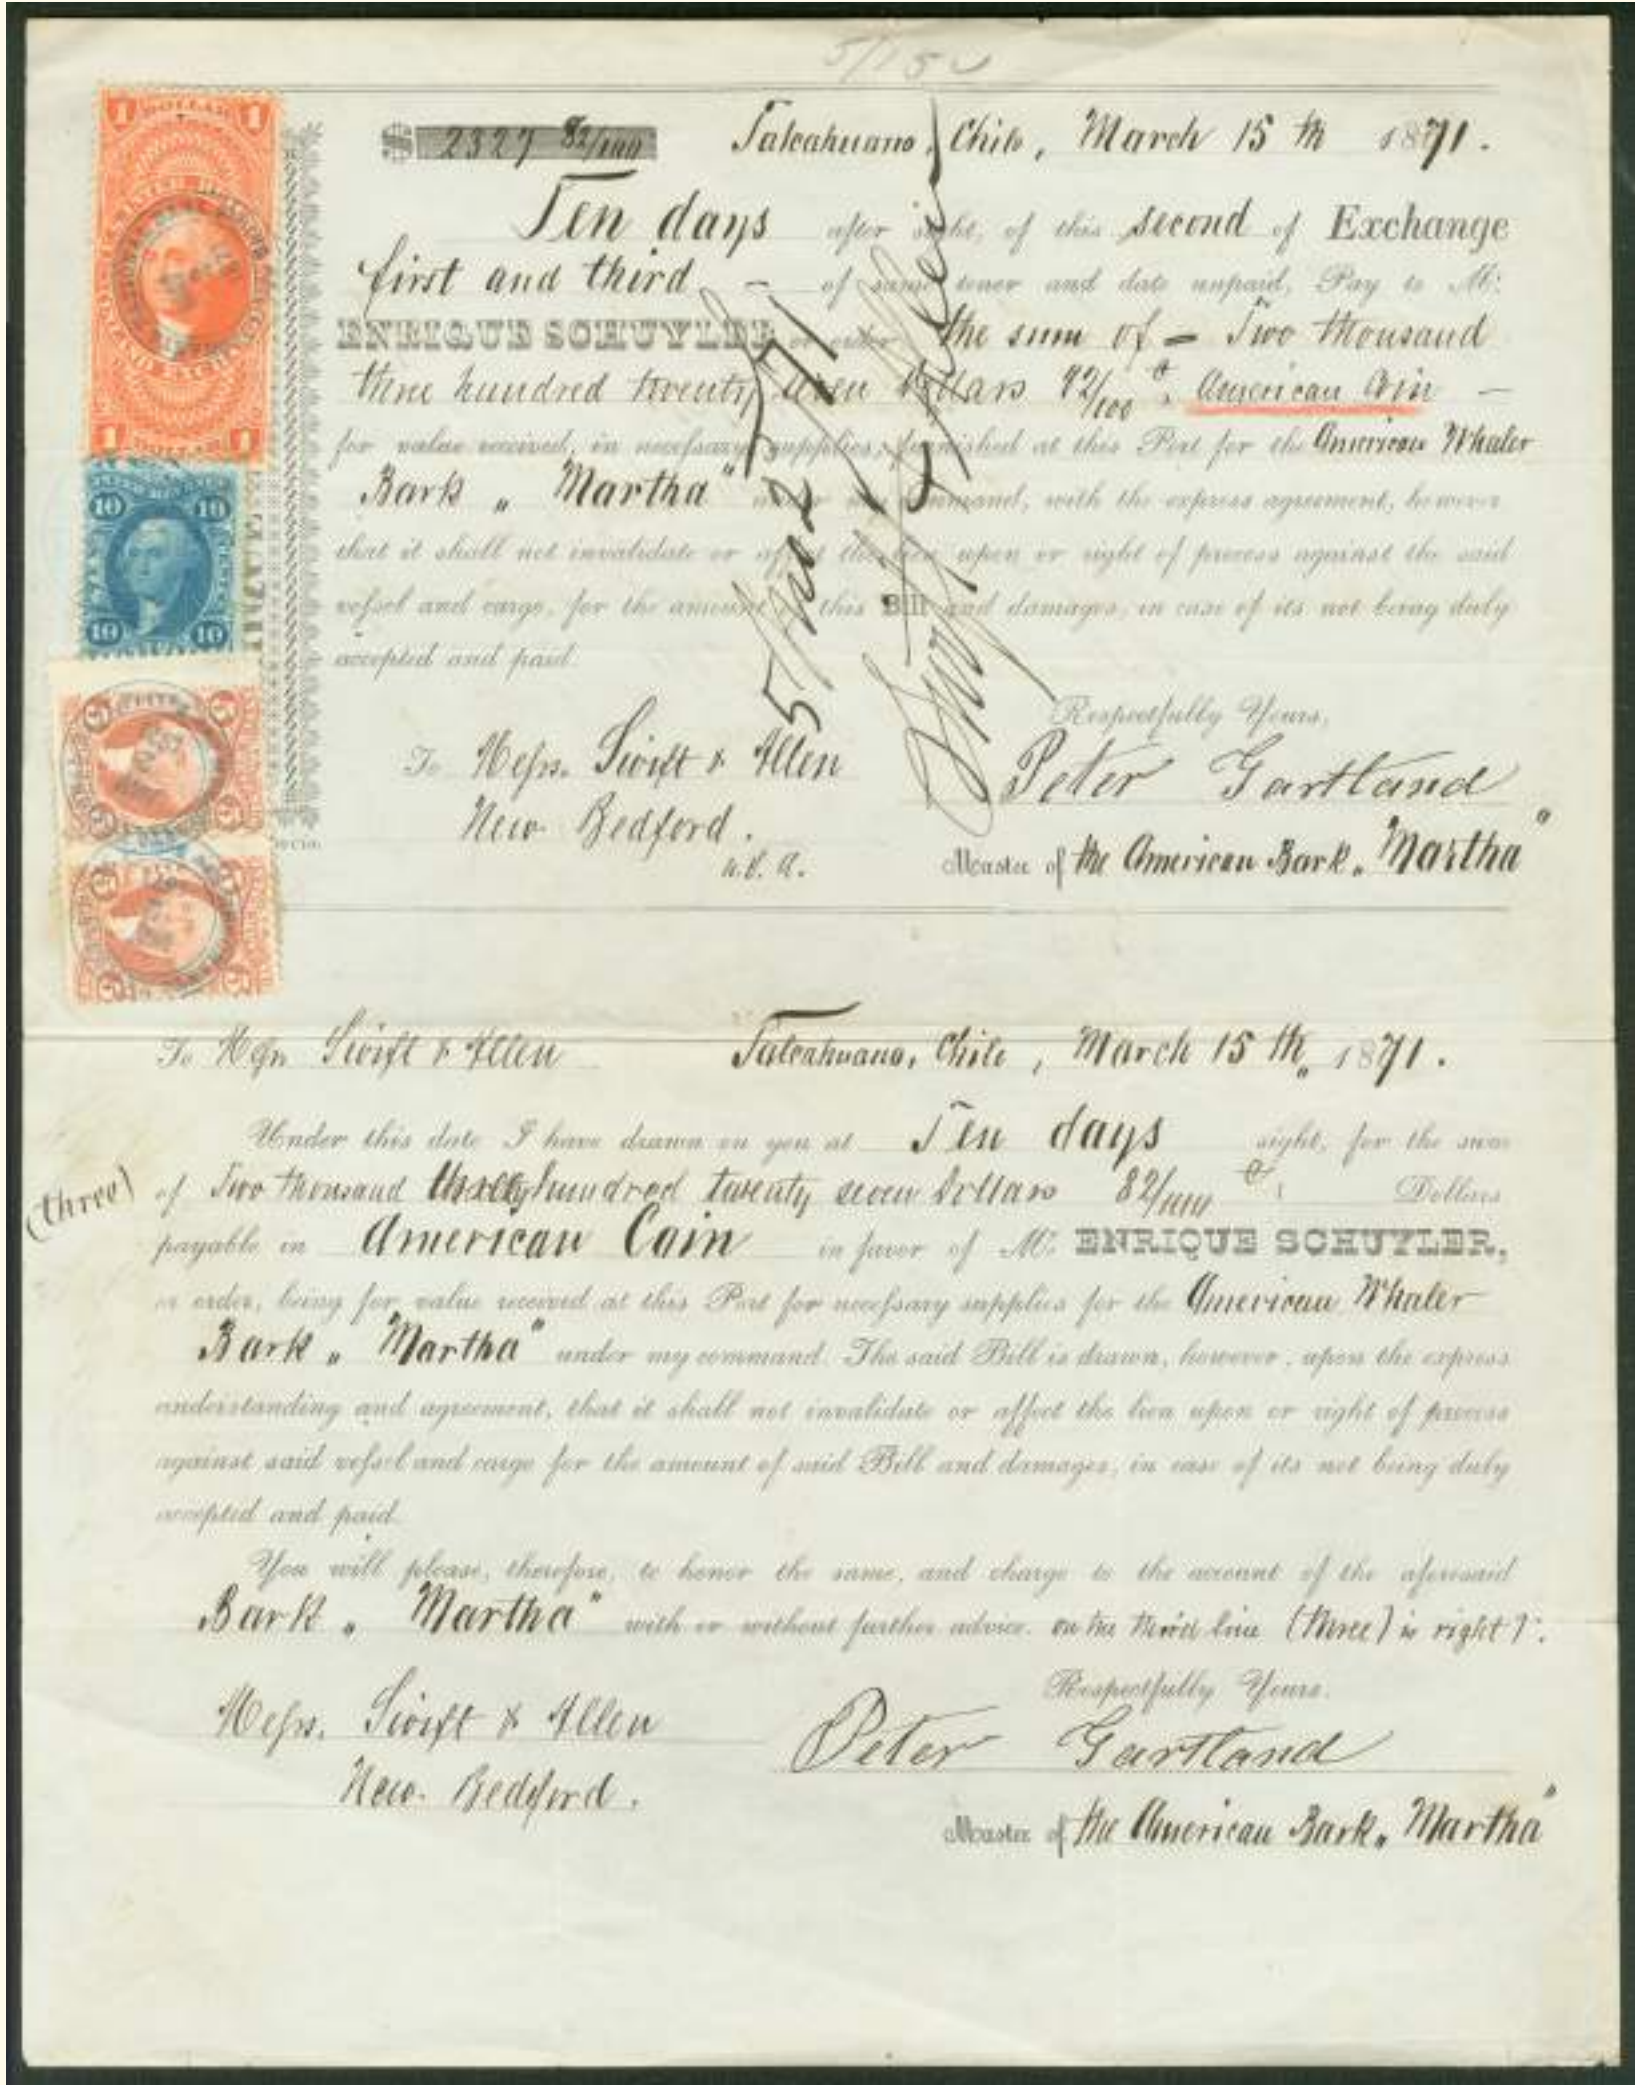 $ 2327 82/100 Talcahuano, Chile, March 15 th 1871.
Ten days after sight, of this second of Exchange
first and third of same tenor and date unpaid, Pay to Mr.
ENRIQUE SCHUYLER or order the sum of = Two thousand
three hundred twenty seven Dollars 82/100 cs. American Coin —
for value received, in necessary supplies, furnished at this Port for the American Whaler
Bark „ Martha" under my command, with the express agreement, however
that it shall not invalidate or affect the lien upon or right of process against the said
vessel and cargo, for the amount of this Bill and damages, in case of its not being duly
accepted and paid.
Respectfully Yours,
To Messrs. Swift & Allen
Peter Gartland
New Bedford.
U.S.A.
Master of the American Bark „Martha"
Swift & Allen
1 DOLLAR 1
1 DOLLAR 1
10 10
10 10
5 5
5 5
5 5
5 5
To Messrs Swift & Allen Talcahuano, Chile, March 15 th, 1871.
Under this date I have drawn on you at Ten days sight, for the sum
(three) of Two thousand hundred twenty seven Dollars 82/100 cs: Dollars
payable in American Coin in favor of Mr. ENRIQUE SCHUYLER,
or order, being for value received at this Port for necessary supplies for the American Whaler
Bark „ Martha" under my command. The said Bill is drawn, however, upon the express
understanding and agreement, that it shall not invalidate or affect the lien upon or right of process
against said vessel and cargo for the amount of said Bill and damages, in case of its not being duly
accepted and paid.
You will please, therefore, to honor the same, and charge to the account of the aforesaid
Bark „ Martha" with or without further advice. on the third line (three) is right
Respectfully Yours.
Messrs. Swift & Allen
Peter Gartland
New Bedford.
Master of the American Bark „ Martha"